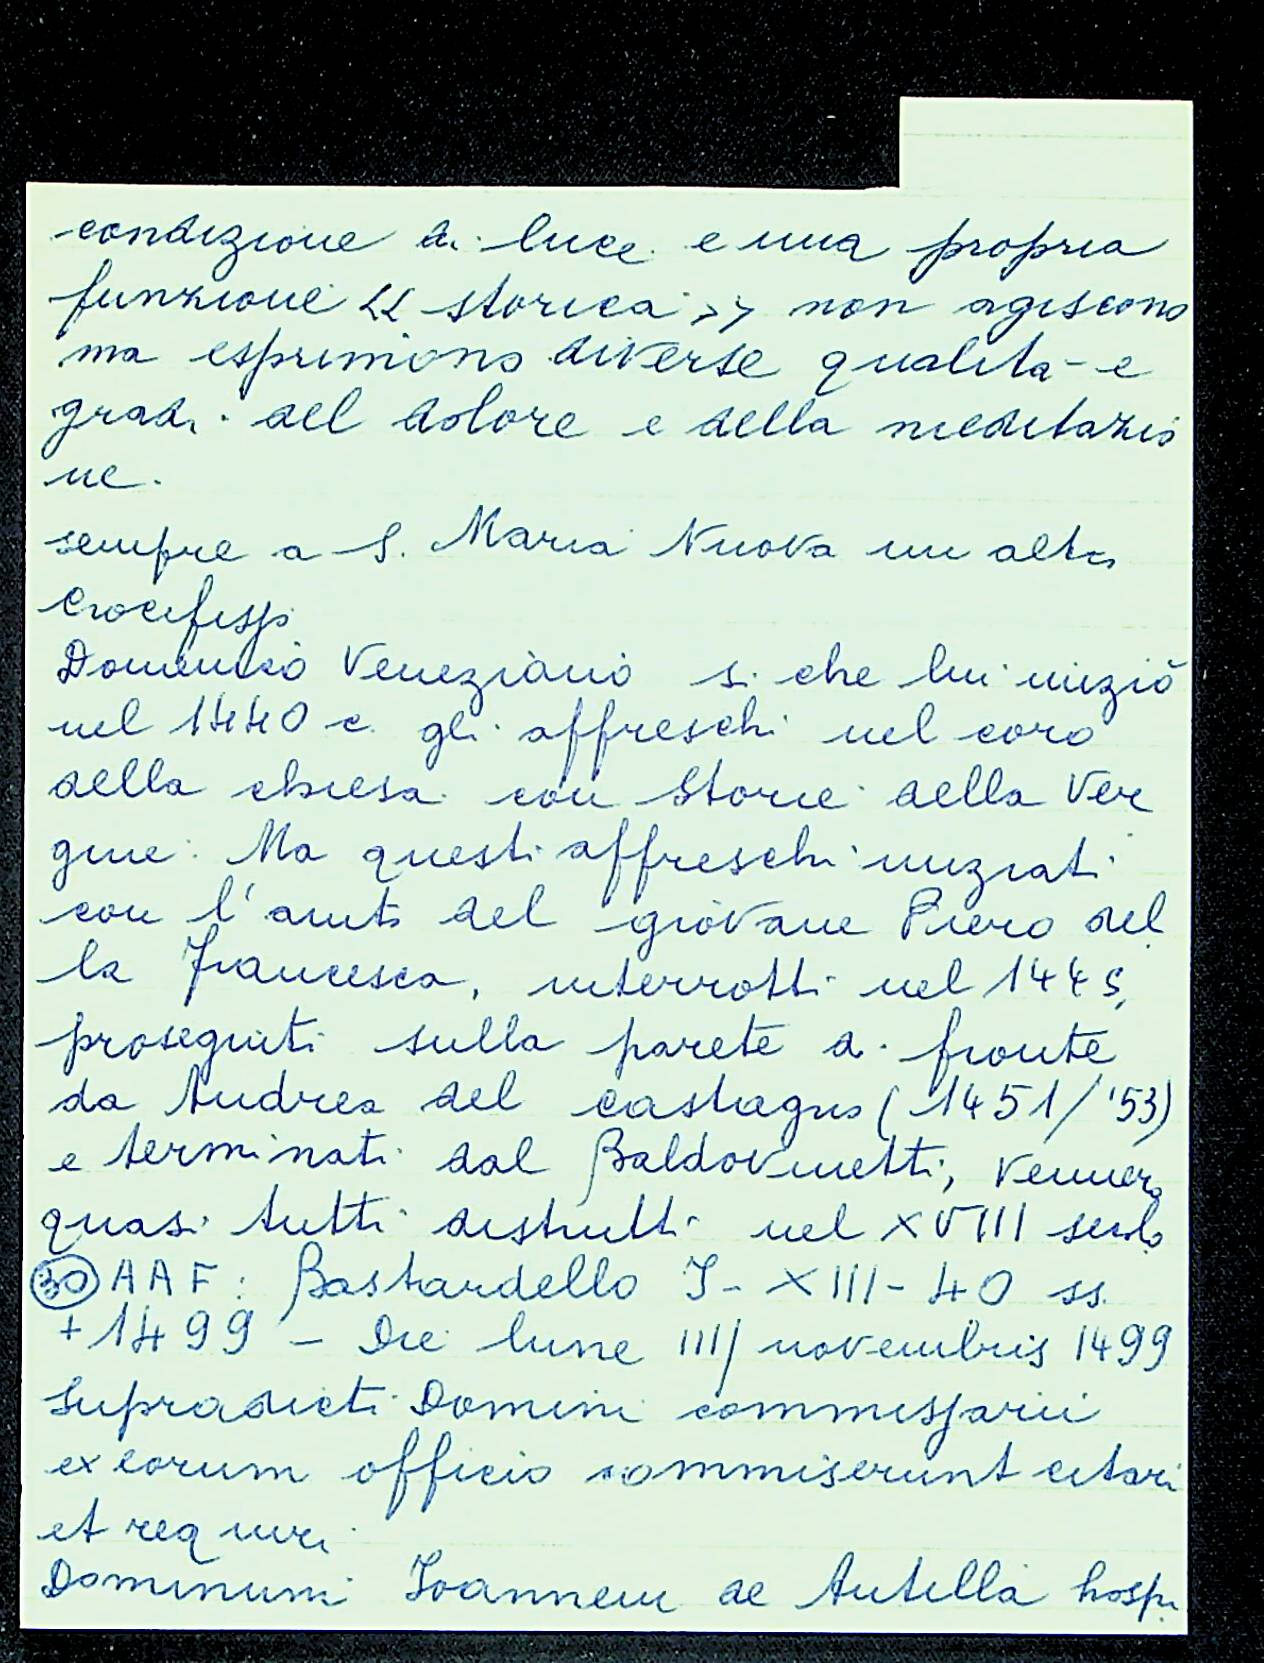 condizione di luce e una propria
funzione << storica >> non agiscono
ma esprimono diverse qualità e
gradi del dolore e della meditazio
ne.
sempre a S. Maria Nuova un altro
Crocifisso
Domenico Veneziano si che lui iniziò
nel 1440 c. gli affreschi nel coro
della chiesa con Storie della Ver
gine. Ma questi affreschi iniziati
con l'aiuto del giovane Piero del
la Francesca, interrotti nel 1445,
proseguiti sulla parete di fronte
da Andrea del Castagno (1451/'53)
e terminati dal Baldovinetti, vennero
quasi tutti distrutti nel XVIII secolo
30 AAF: Bastardello I-XIII-40 ss.
+1499 - Die lune IIII novembris 1499
Supradicti Domini commissarii
ex eorum officio commiserunt citari
et requiri
Dominum Ioannem de Antilla hospi